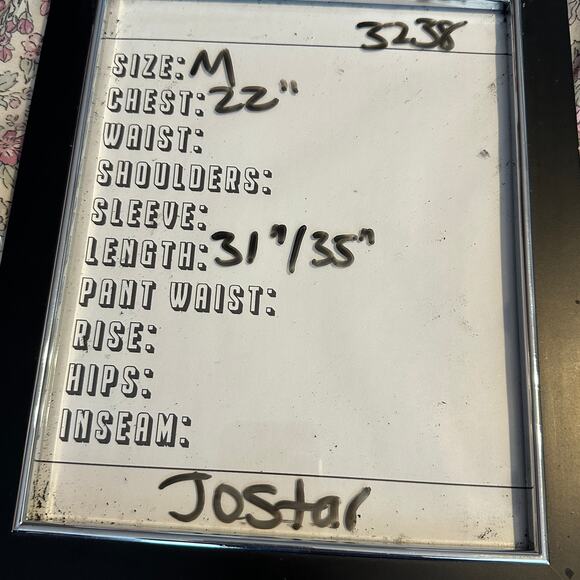 3238
SIZE: M
CHEST: 22"
WAIST:
SHOULDERS:
SLEEVE:
LENGTH: 31"/35"
PANT WAIST:
RISE:
HIPS:
INSEAM:
JOStar